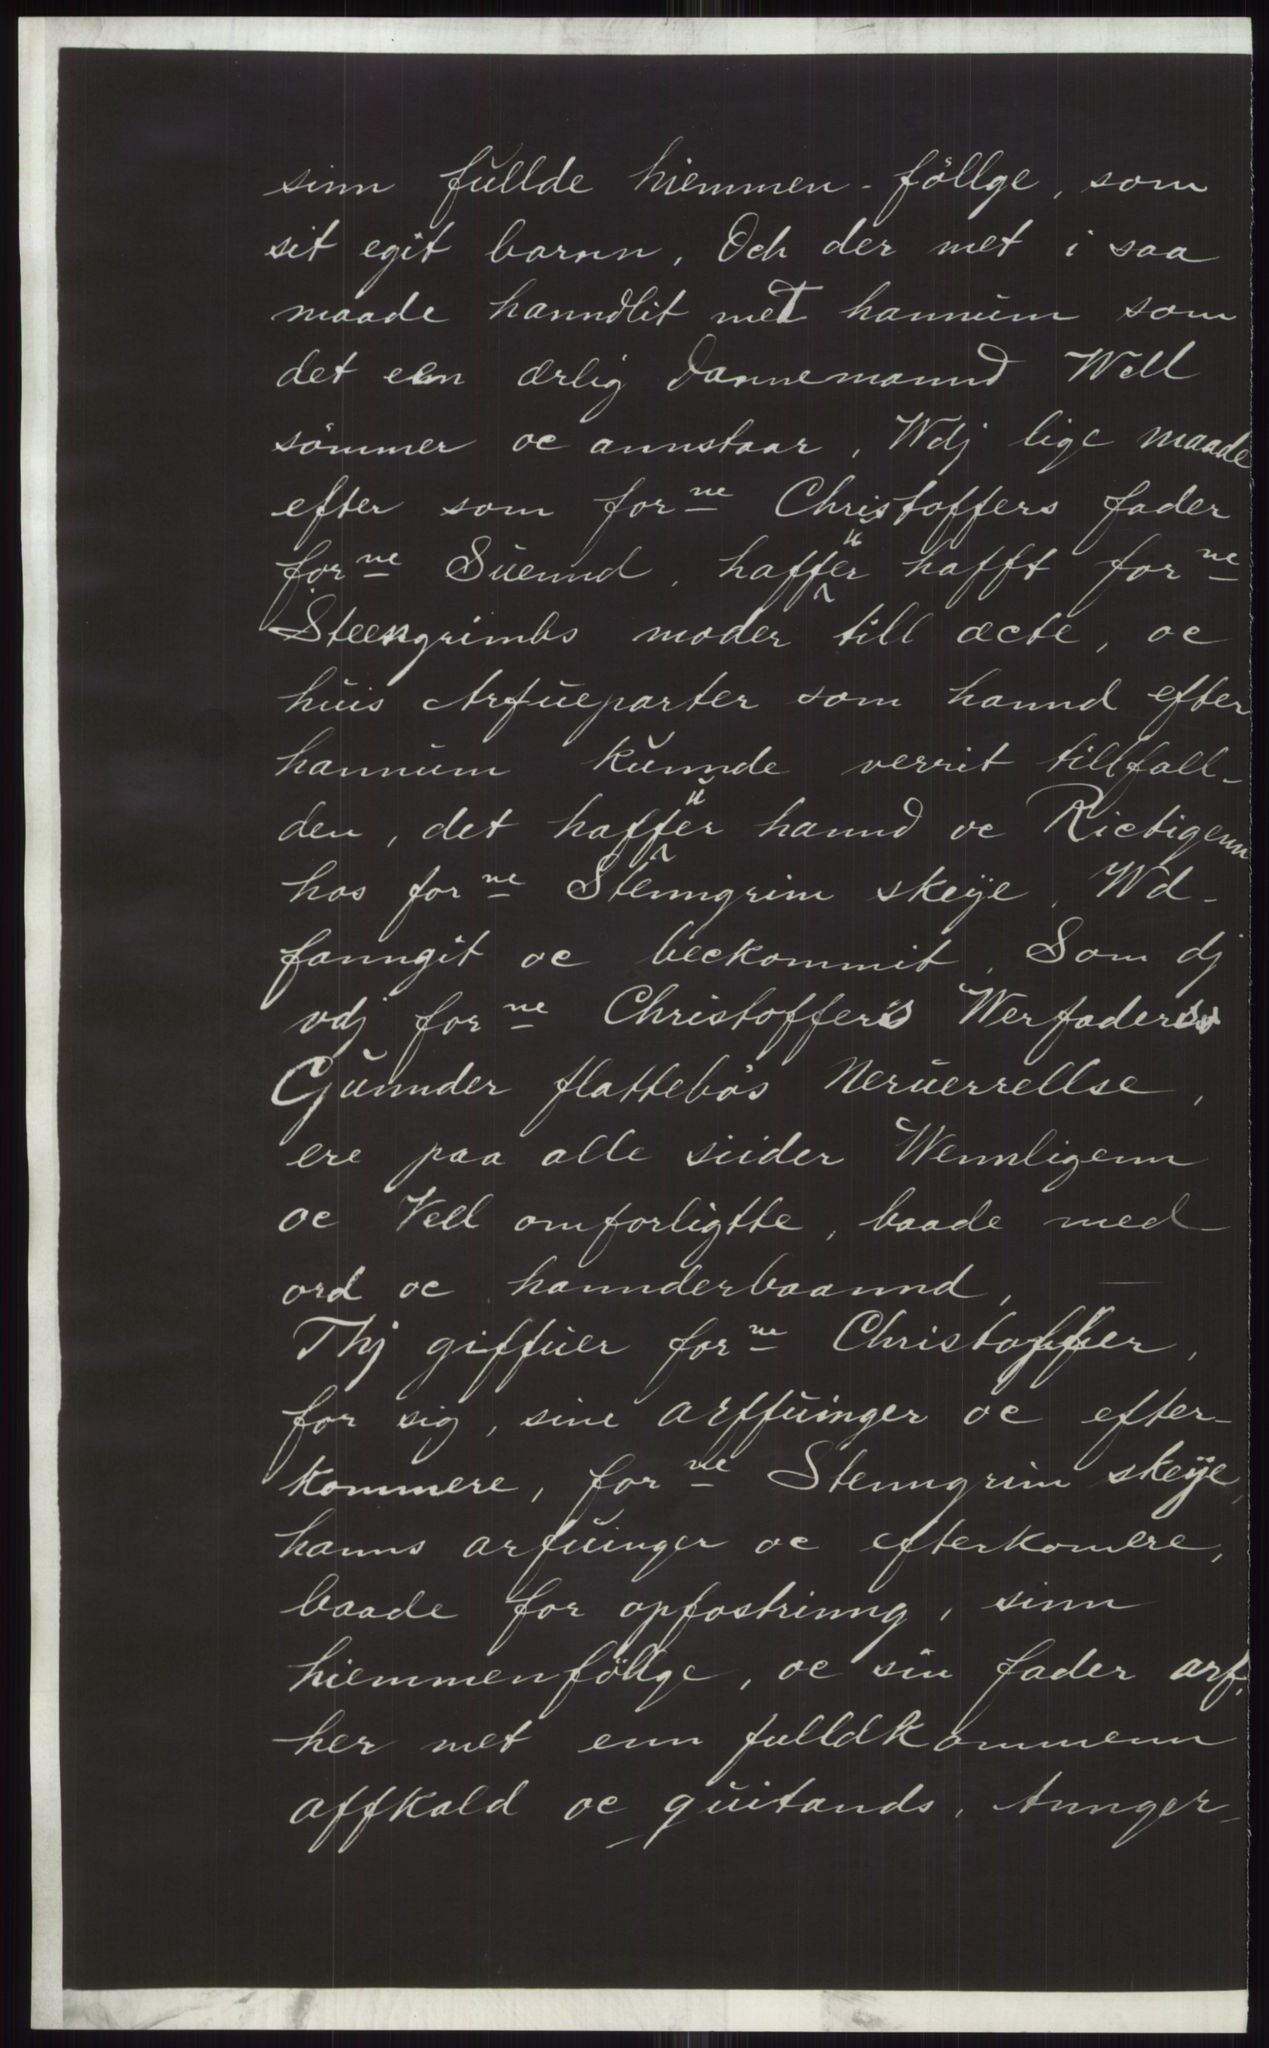 sinn fullde hiemmen-föllge, som
sit egit barnn, Och der met i saa
maade hanndlit met hannum som
det een ærlig Dannemannd Well
sömmer oc annstaar, Wdj lige maade
efter som for ne Christoffers fader
for ne Suennd, haffuer hafft for ne
Steengrimbs moder till æcte, oc
huis Arfueparter som hannd efter
hannum kunnde verrit tillfall-
den, det haffuer hannd oc Rictigenn
hos for ne Stenngrim skeije, Wd-
fanngit oc beckommit, Som dj
vdj for ne Christoffers Werfaders
Gunnder flattebös neruerrellse,
ere paa alle siider Wennligenn
oc Vell omforligtte, baade med
ord oc hannderbaannd, —
Thj giffuer for ne Christoffer,
for sig, sine arffuinger oc efter-
kommere, for ne Stenngrim skeije,
hanns arfuinger oc efterkomere,
baade for opfostrinng, sinn
hiemmenföllge, oc sin fader arf,
her met enn fulldkommenn
affkald oc quitands, Annger-